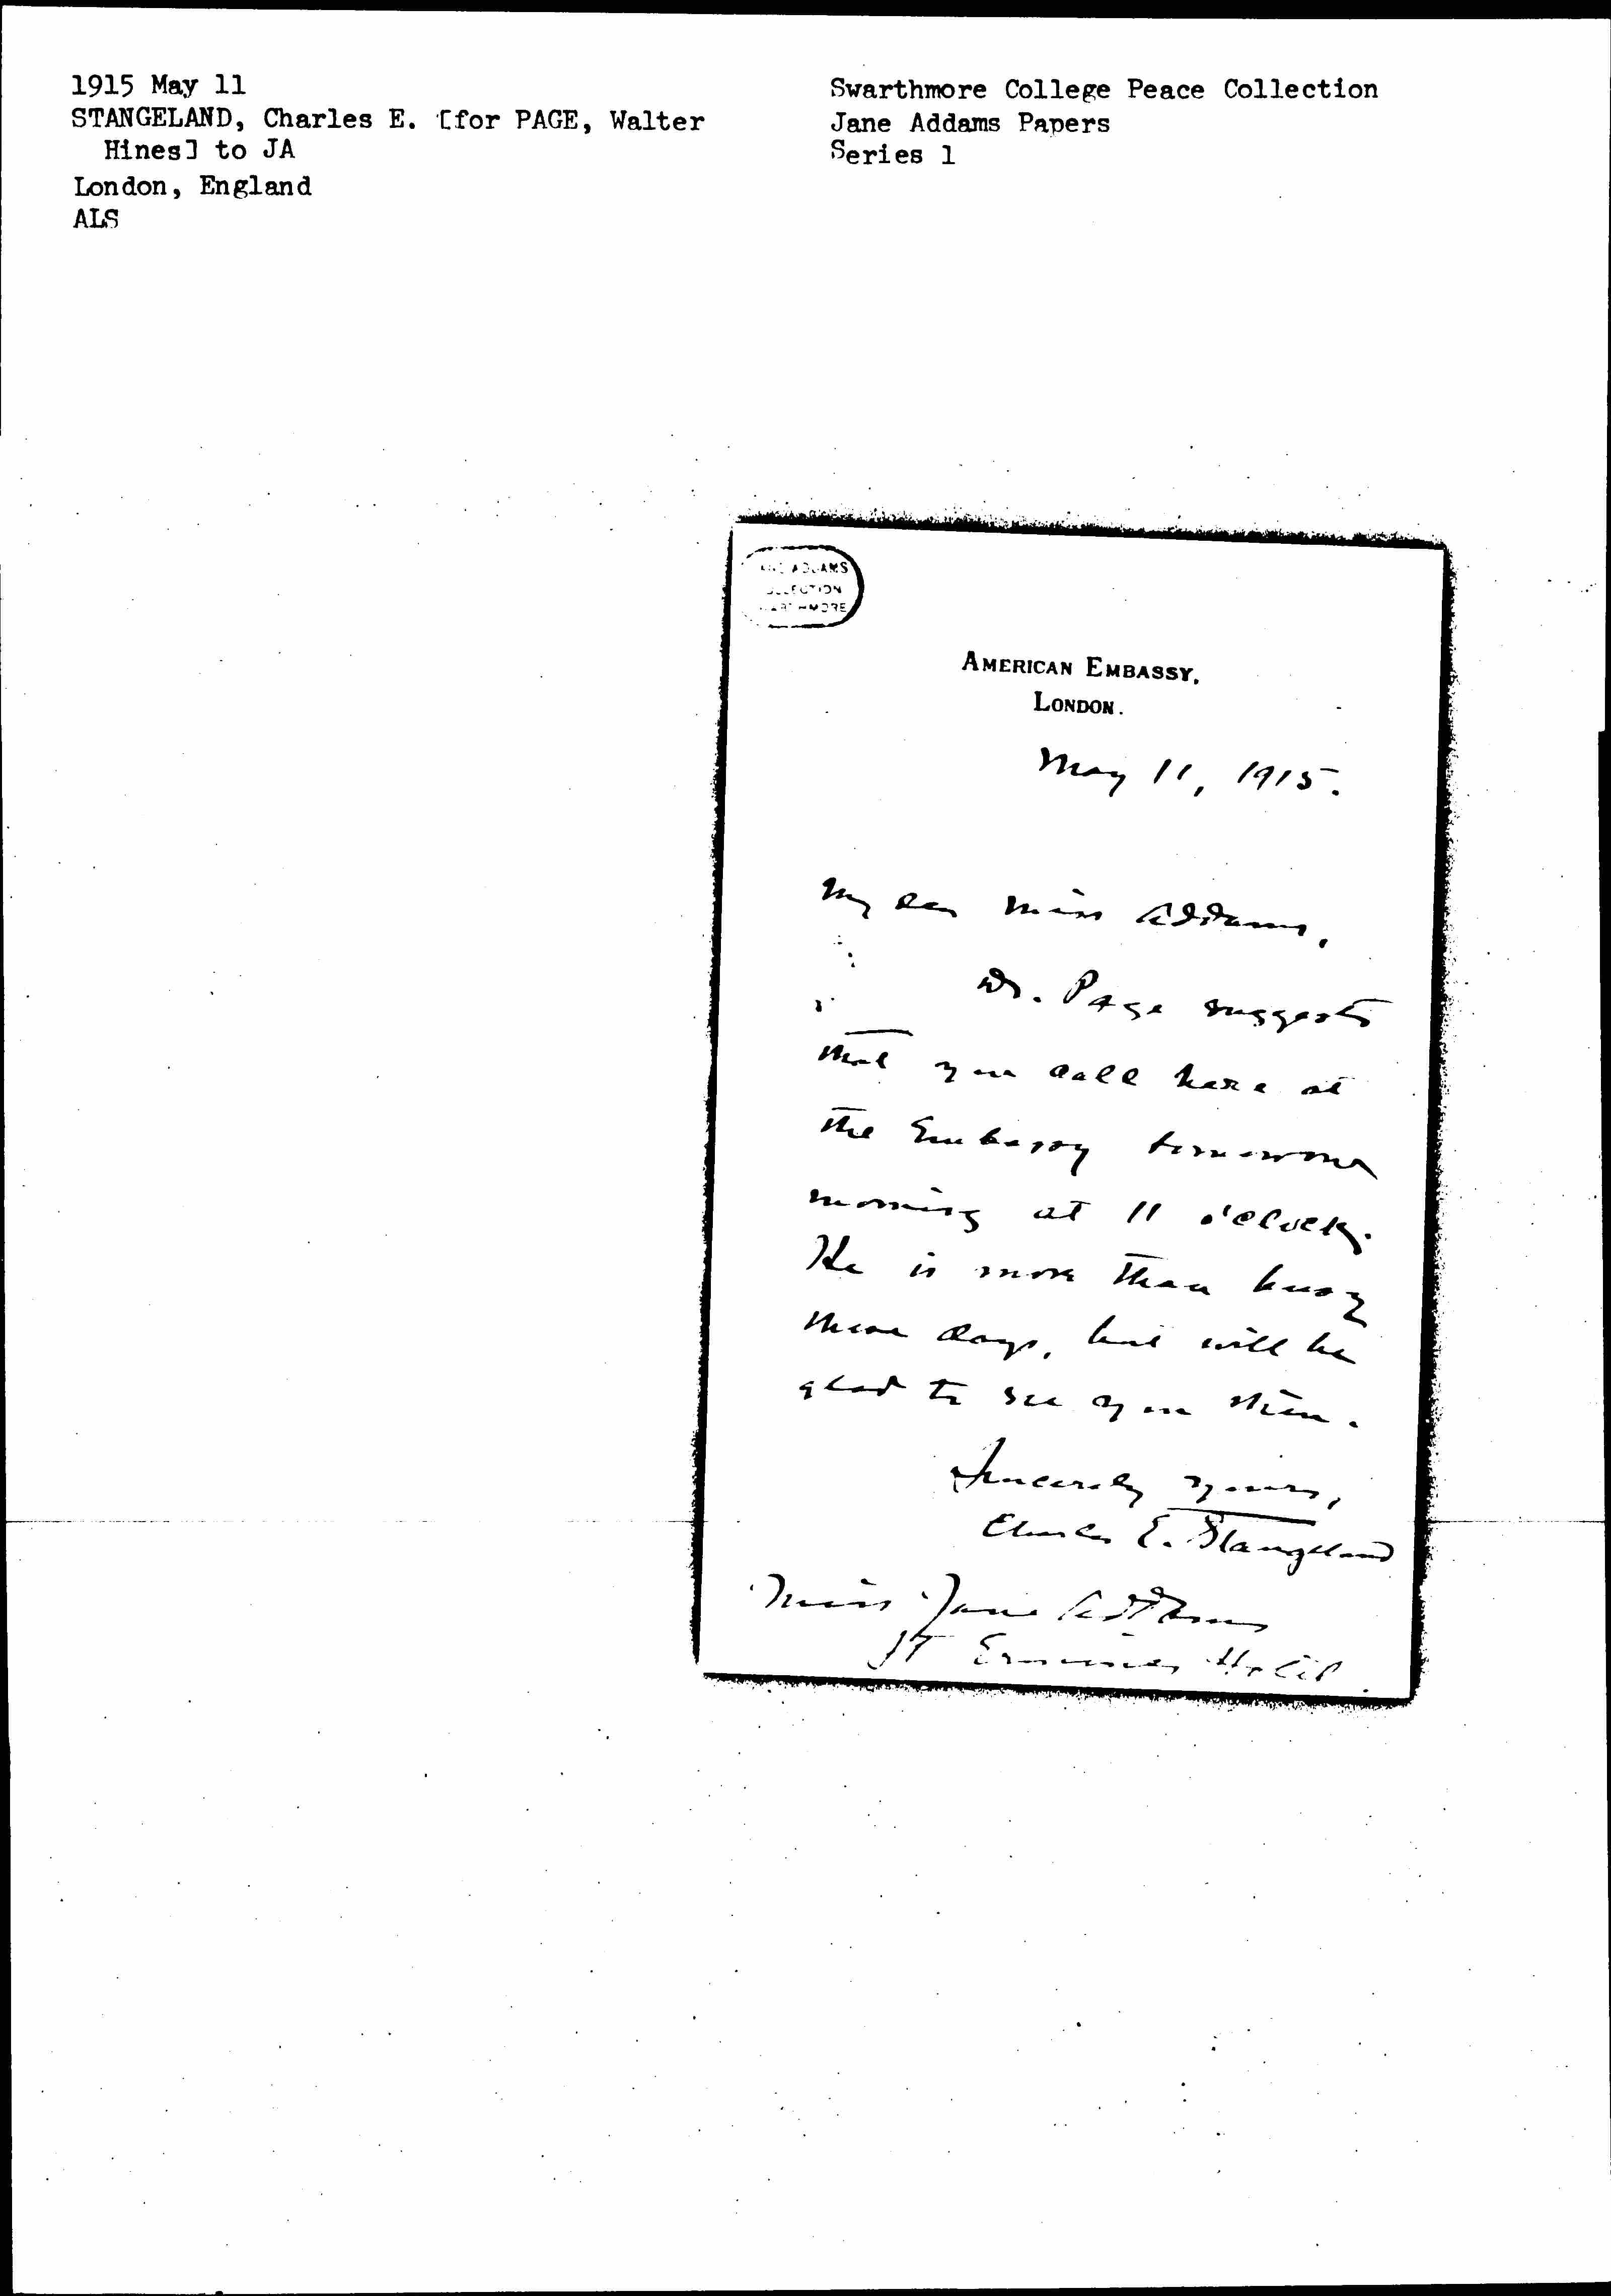 1915 May 11
STANGELAND, Charles E. [for PAGE, Walter
Hines] to JA
London, England
ALS
Swarthmore College Peace Collection
Jane Addams Papers
Series 1
ADDAMS
AMERICAN EMBASSY,
LONDON.
May 11, 1915.
My dear Miss Addams,
Dr. Page suggests
that you call here at
the Embassy tomorrow
morning at 11 o'clock.
He is more than busy
these days, but will be
glad to see you then.
Sincerely yours,
Charles E. Stangeland
Miss Jane Addams
St Ermines Hotel.